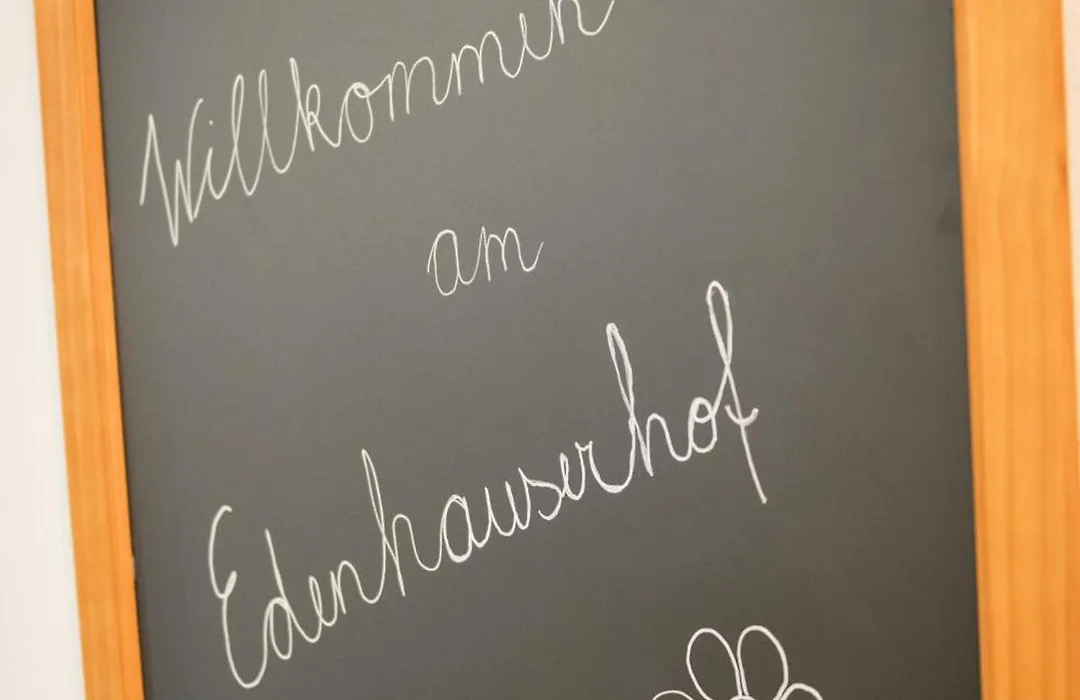 Willkommen
am
Edenhauserhof